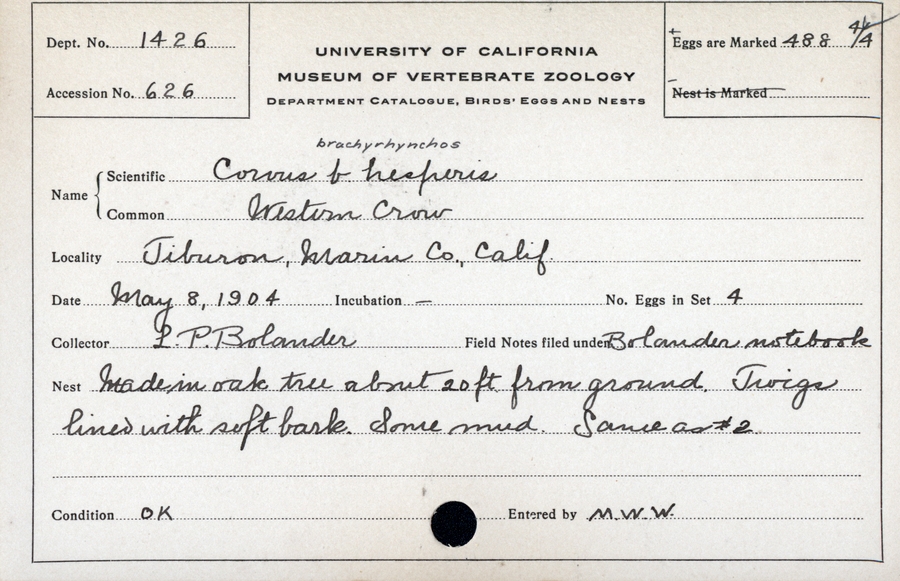 Dept. No. 1426
UNIVERSITY OF CALIFORNIA
MUSEUM OF VERTEBRATE ZOOLOGY
DEPARTMENT CATALOGUE, BIRDS' EGGS AND NESTS
Eggs are Marked 488 4/4
Accession No. 626
Nest is Marked
brachyrhynchos
Name
Scientific Corvus b hesperis
Common Western Crow
Locality Tiburon, Marin Co., Calif.
Date May 8, 1904 Incubation — No. Eggs in Set 4
Collector L.P. Bolander Field Notes filed under Bolander notebook
Nest Made in oak tree about 20 ft from ground. Twigs
lined with soft bark. Some mud. Same as #2
Condition OK Entered by M.W.W.